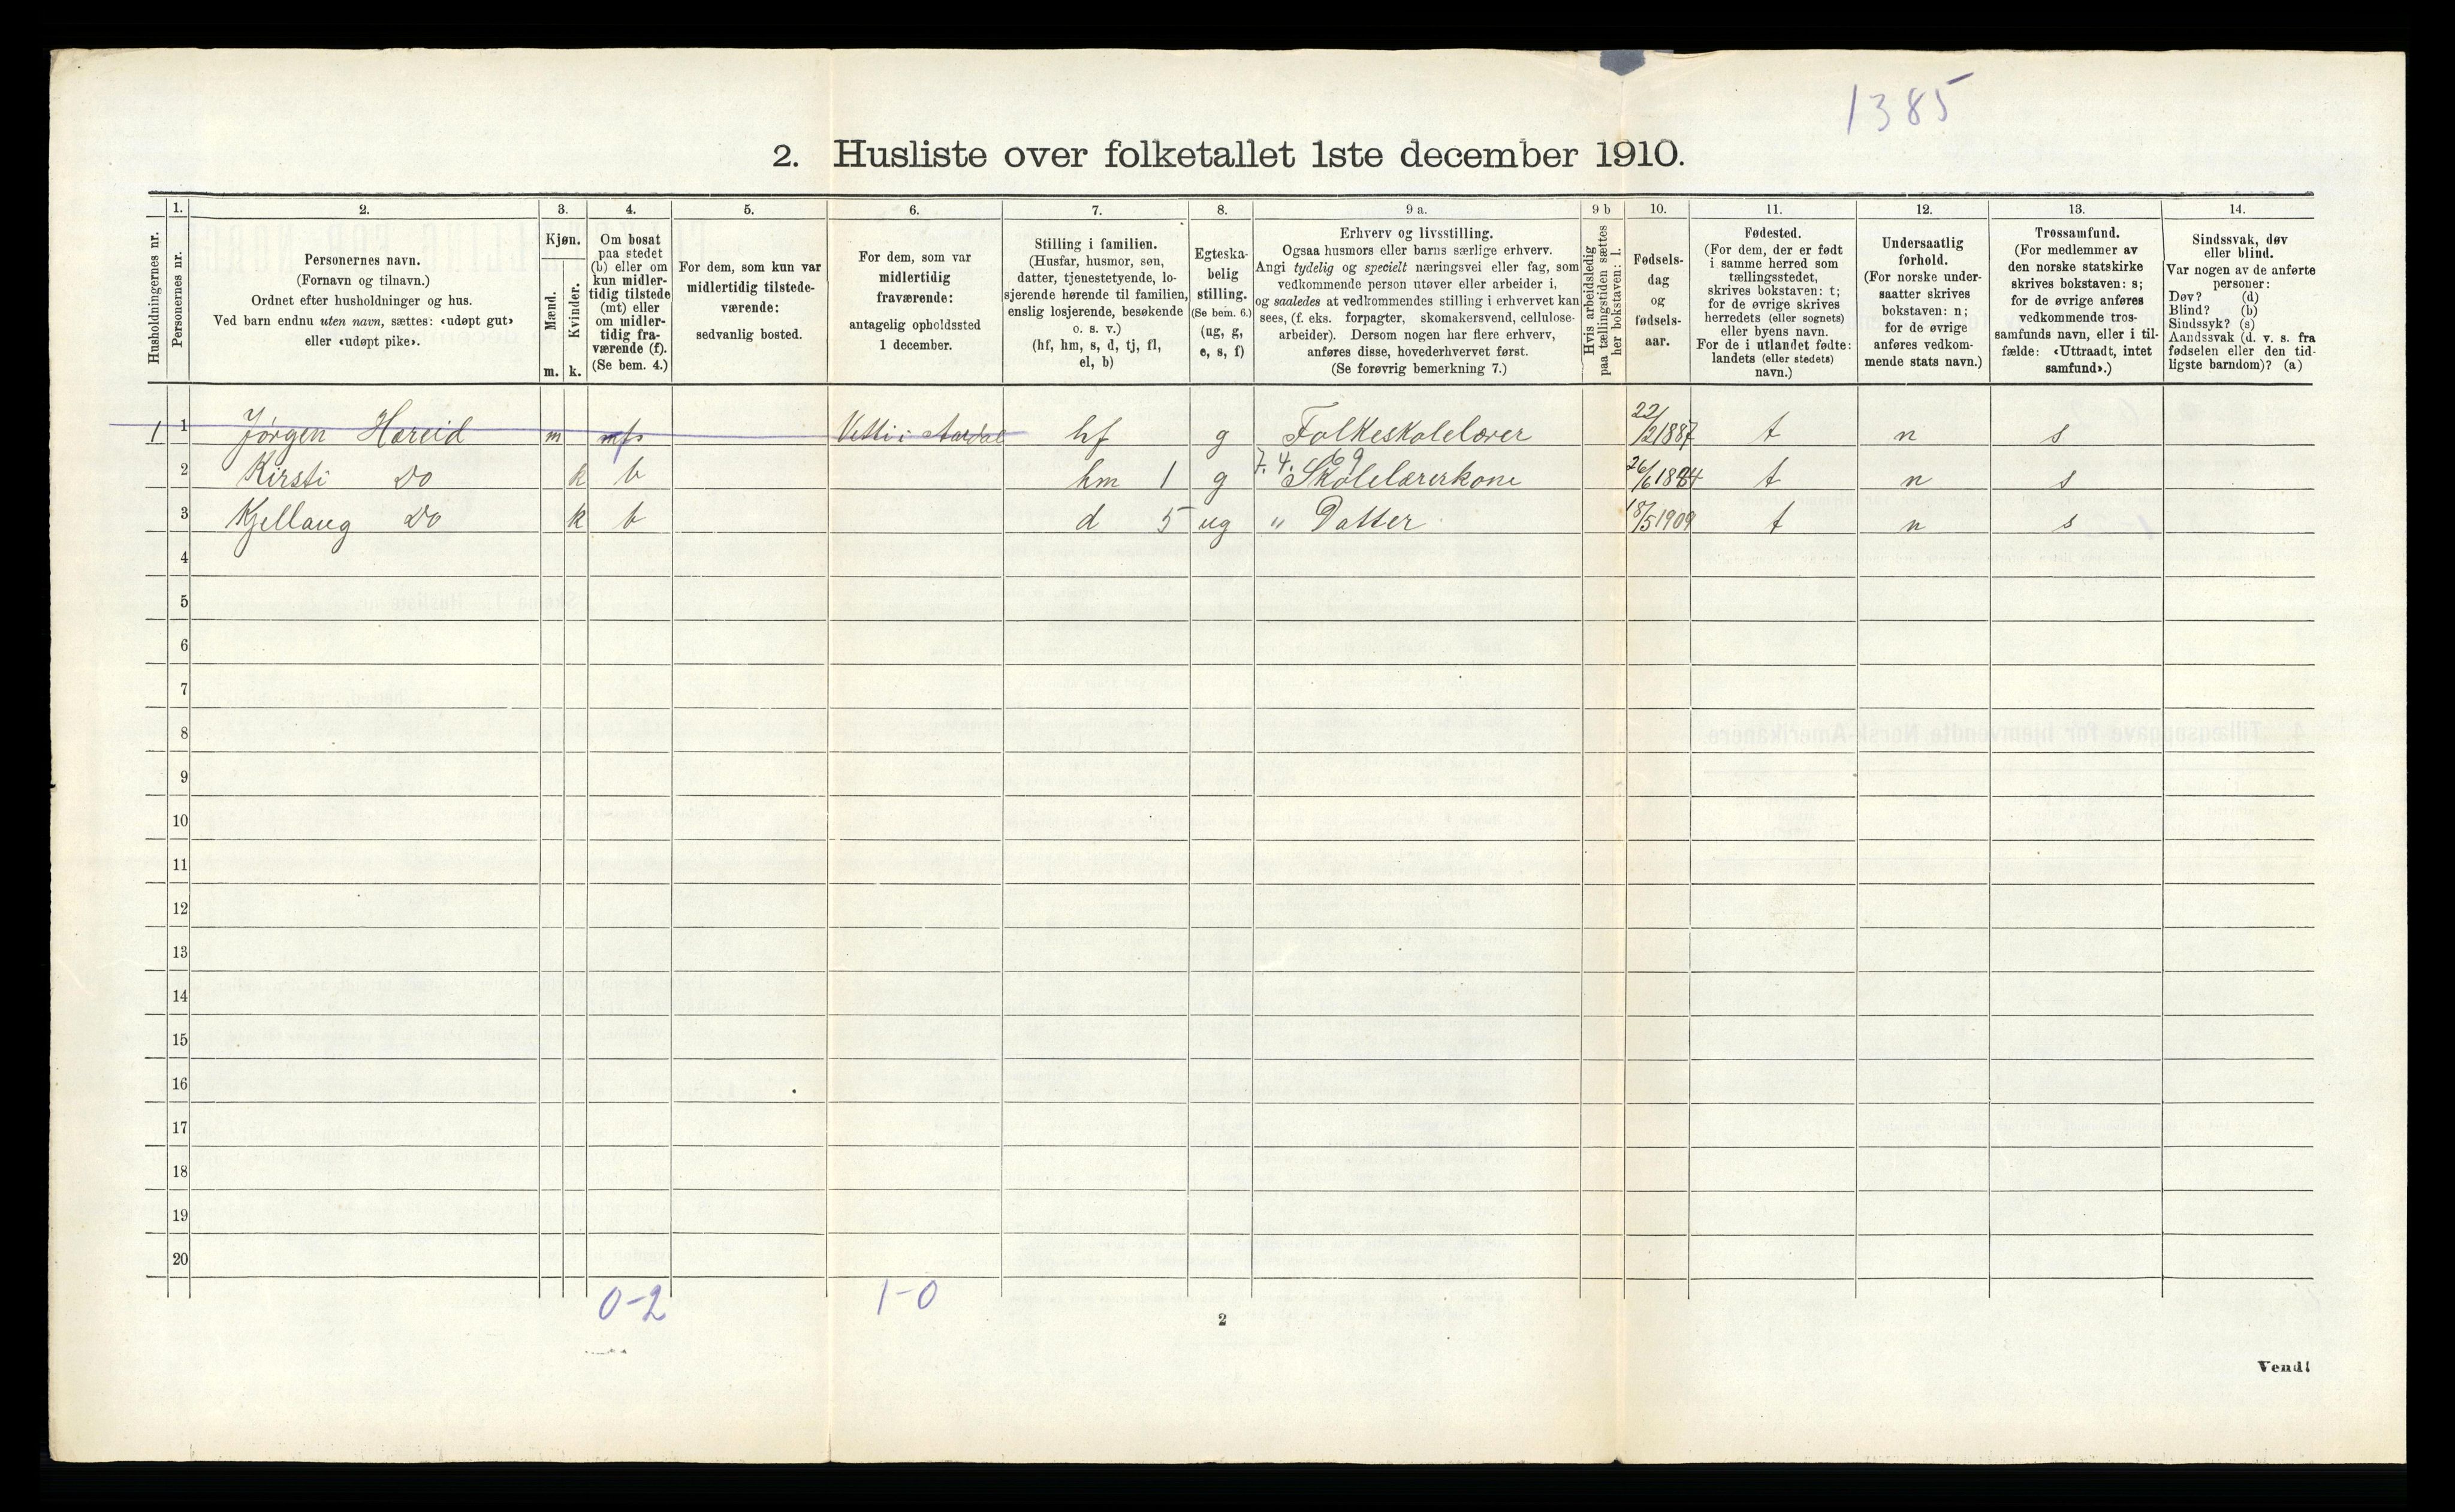 1385
2. Husliste over folketallet 1ste december 1910.
Husholdningernes nr.
1.
Personernes nr.
2.
Personernes navn.
(Fornavn og tilnavn.)
Ordnet efter husholdninger og hus.
Ved barn endnu uten navn, sættes: «udøpt gut»
eller «udøpt pike».
3.
Kjøn.
Mænd.
m.
Kvinder.
k.
4.
Om bosat
paa stedet
(b) eller om
kun midler-
tidig tilstede
(mt) eller
om midler-
tidig fra-
værende (f).
(Se bem. 4.)
5.
For dem, som kun var
midlertidig tilstede-
værende:
sedvanlig bosted.
6.
For dem, som var
midlertidig
fraværende:
antagelig opholdssted
1 december.
7.
Stilling i familien.
(Husfar, husmor, søn,
datter, tjenestetyende, lo-
sjerende hørende til familien,
enslig losjerende, besøkende
o. s. v.)
(hf, hm, s, d, tj, fl,
el, b)
8.
Egteska-
belig
stilling.
(Se bem. 6.)
(ug, g,
e, s, f)
9 a.
Erhverv og livsstilling.
Ogsaa husmors eller barns særlige erhverv.
Angi tydelig og specielt næringsvei eller fag, som
vedkommende person utøver eller arbeider i,
og saaledes at vedkommendes stilling i erhvervet kan
sees, (f. eks. forpagter, skomakersvend, cellulose-
arbeider). Dersom nogen har flere erhverv,
anføres disse, hovederhvervet først.
(Se forøvrig bemerkning 7.)
9 b
Hvis arbeidsledig
paa tællingstiden sættes
her bokstaven: l.
10.
Fødsels-
dag
og
fødsels-
aar.
11.
Fødested.
(For dem, der er født
i samme herred som
tællingsstedet,
skrives bokstaven: t;
for de øvrige skrives
herredets (eller sognets)
eller byens navn.
For de i utlandet fødte:
landets (eller stedets)
navn.)
12.
Undersaatlig
forhold.
(For norske under-
saatter skrives
bokstaven: n;
for de øvrige
anføres vedkom-
mende stats navn.)
13.
Trossamfund.
(For medlemmer av
den norske statskirke
skrives bokstaven: s;
for de øvrige anføres
vedkommende tros-
samfunds navn, eller i til-
fælde: «Uttraadt, intet
samfund».)
14.
Sindssvak, døv
eller blind.
Var nogen av de anførte
personer:
Døv? (d)
Blind? (b)
Sindssyk? (s)
Aandssvak (d. v. s. fra
fødselen eller den tid-
ligste barndom)? (a)
1 1 Jørgen Hæreid m Vetti i Aardal hf g Folkeskolelærer 22/2 1887 t n s
2 Kirsti Do k b hm 1 g 7. 4. 69 Skolelærerkone 26/6 1884 t n s
3 Kjellaug Do k b d 5 ug " Datter 18/5 1909 t n s
4
5
6
7
8
9
10
11
12
13
14
15
16
17
18
19
20
0-2 1-0
2
Vend!